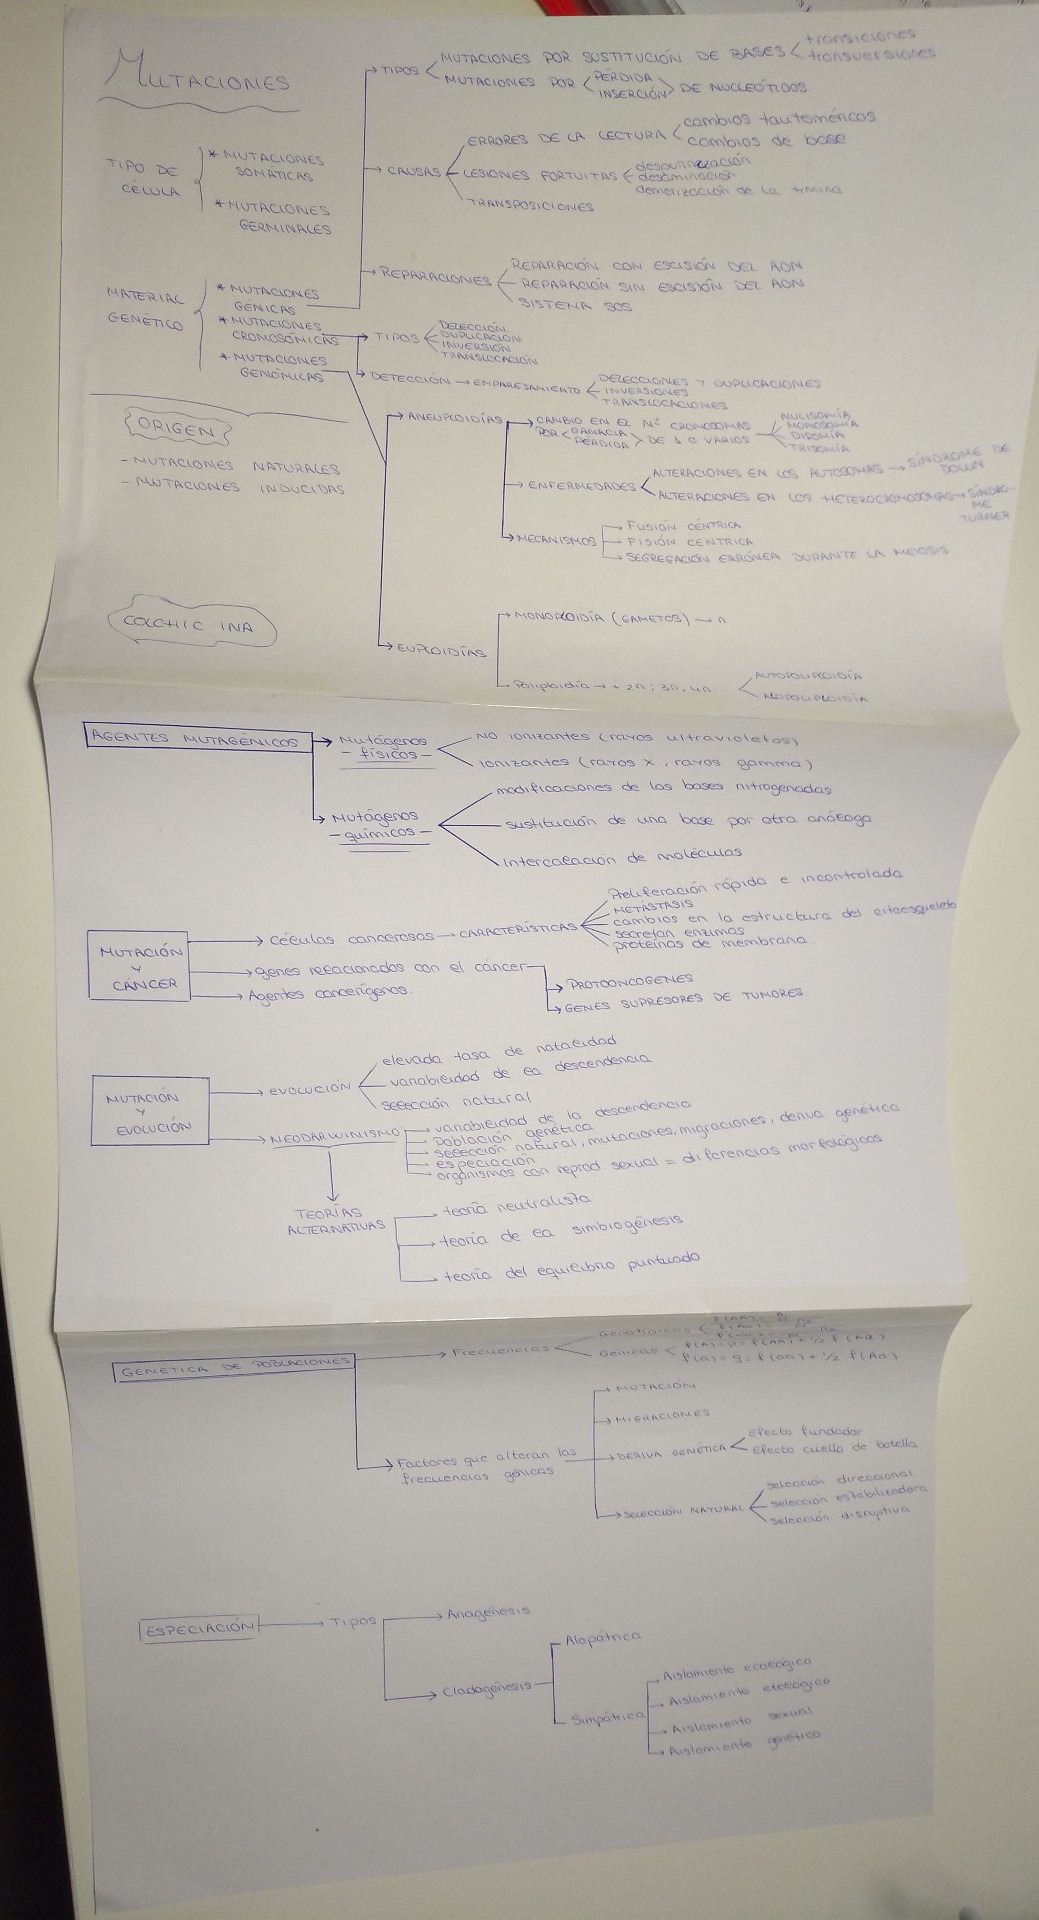 MUTACIONES
TIPO DE CÉLULA
* MUTACIONES SOMÁTICAS
* MUTACIONES GERMINALES
MATERIAL GENÉTICO
* MUTACIONES GÉNICAS
* MUTACIONES CROMOSÓMICAS
* MUTACIONES GENÓMICAS
TIPOS
MUTACIONES POR SUSTITUCIÓN DE BASES
transiciones
transversiones
MUTACIONES POR
PÉRDIDA
INSERCIÓN
DE NUCLEÓTIDOS
CAUSAS
ERRORES DE LA LECTURA
cambios tautoméricos
cambios de base
LESIONES FORTUITAS
despurinización
desaminación
demerización de la timina
TRANSPOSICIONES
REPARACIONES
REPARACIÓN CON ESCISIÓN DEL ADN
REPARACIÓN SIN ESCISIÓN DEL ADN
SISTEMA SOS
TIPOS
DELECCIÓN
DUPLICACIÓN
INVERSIÓN
TRANSLOCACIÓN
DETECCIÓN → EMPARESAMIENTO
DELECCIONES Y DUPLICACIONES
INVERSIONES
TRANSLOCACIONES
ORIGEN
- MUTACIONES NATURALES
- MUTACIONES INDUCIDAS
ANEUPLOIDÍAS
CAMBIO EN EL Nº CROMOSOMAS
POR
GANACIA
PÉRDIDA
DE 1 O VARIOS
NULISOMÍA
MONOSOMÍA
DISOMÍA
TRISOMÍA
ENFERMEDADES
ALTERACIONES EN LOS AUTOSOMAS → SÍNDROME DE DOWN
ALTERACIONES EN LOS HETEROCROMOSOMAS → SÍNDROME TURNER
MECANISMOS
FUSIÓN CÉNTRICA
FISIÓN CENTRICA
SEGREGACIÓN ERRÓNEA DURANTE LA MEIOSIS
COLCHIC INA
EUPLOIDÍAS
MONOPLOIDÍA (GAMETOS) → n
Poliploidía → + 2n; 3n, 4n...
AUTOPOLIPLOIDÍA
ALOPOLIPLOIDÍA
AGENTES MUTAGÉNICOS
Mutágenos
- físicos -
NO ionizantes (rayos ultravioletas)
ionizantes (rayos x, rayos gamma)
Mutágenos
- químicos -
modificaciones de las bases nitrogenadas
sustitución de una base por otra análoga
Intercalación de moléculas
MUTACIÓN
Y
CÁNCER
Células cancerosas → CARACTERÍSTICAS
Proliferación rápida e incontrolada
METÁSTASIS
cambios en la estructura del citoesqueleto
secretan enzimas
proteínas de membrana.
genes relacionados con el cáncer
PROTOONCOGENES
GENES SUPRESORES DE TUMORES.
Agentes cancerígenos.
MUTACIÓN
Y
EVOLUCIÓN
EVOLUCIÓN
elevada tasa de natalidad
variabilidad de la descendencia
selección natural
NEODARWINISMO
variabilidad de la descendencia
Población genética
selección natural, mutaciones, migraciones, deriva genética
especiación
organismos con reprod. sexual = diferencias morfológicas
TEORÍAS
ALTERNATIVAS
teoría neutralista
teoría de la simbiogénesis
teoría del equilibrio puntuado
GENÉTICA DE POBLACIONES
Frecuencias
Genotípicas
Génicas
f(A) = p = f(AA) + 1/2 f(Aa)
f(a) = q = f(aa) + 1/2 f(Aa)
Factores que alteran las
frecuencias génicas
MUTACIÓN
MIGRACIONES
DERIVA GENÉTICA
Efecto fundador
Efecto cuello de botella
SELECCIÓN NATURAL
selección direccional
selección estabilizadora
selección disruptiva
ESPECIACIÓN
Tipos
Anagénesis
Cladogénesis
Alopátrica
Simpátrica
Aislamiento ecológico
Aislamiento etológico
Aislamiento sexual
Aislamiento genético